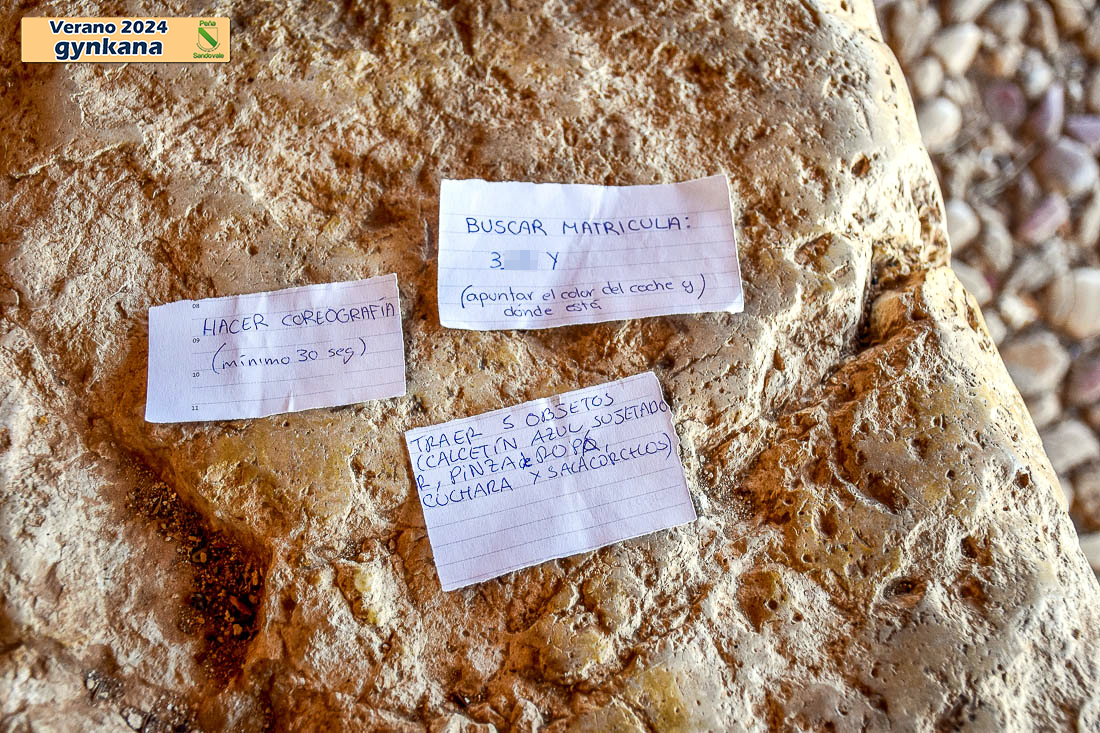 Verano 2024
gynkana
Peña
Sandovale
BUSCAR MATRICULA:
3 Y
(apuntar el color del coche y)
dónde está
08
HACER COREOGRAFÍA
09
(mínimo 30 seg)
10
11
TRAER 5 OBJETOS
(CALCETÍN AZUL, SUJETADO
R, PINZA de ROPA,
CUCHARA Y SACACORCHOS)